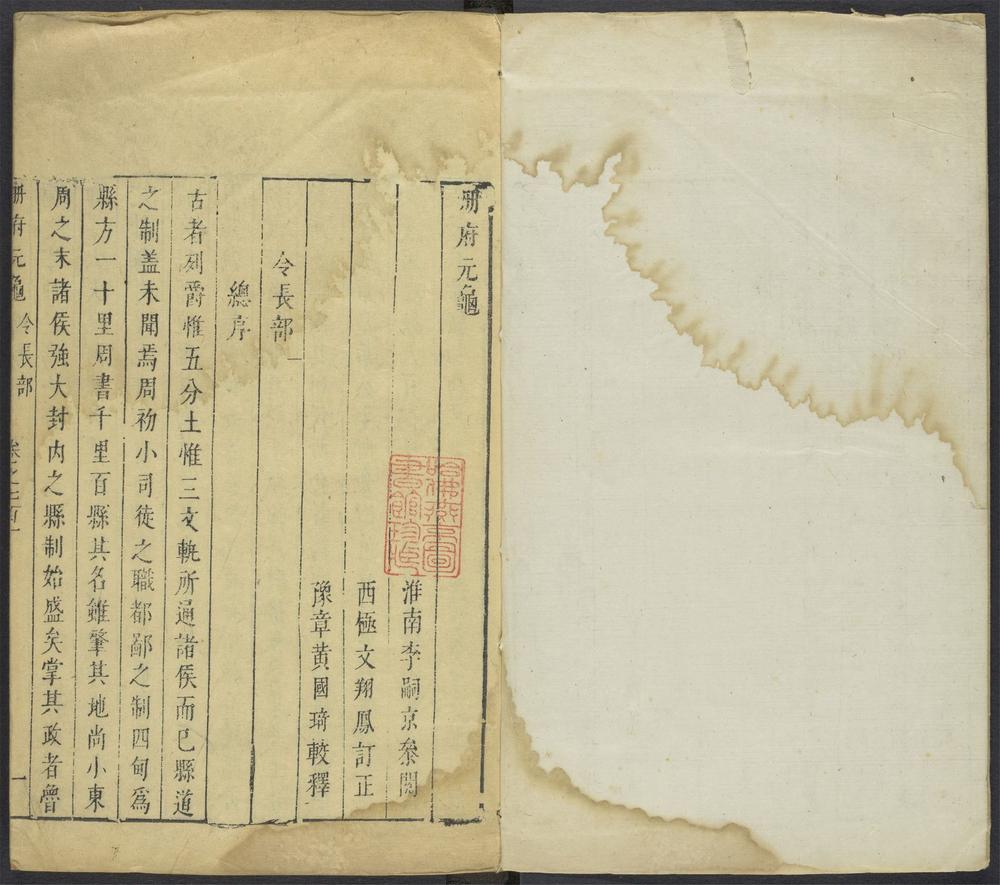 册府元龜
淮南李嗣京叅閱
西極文翔鳳訂正
豫章黃國琦較釋
令長部
總序
古者列爵惟五分土惟三文軌所通諸侯而已縣道
之制蓋未聞焉周初小司徒之職都鄙之制四甸爲
縣方一十里周書千里百縣其名雖肇其地尚小東
周之末諸侯強大封內之縣制始盛矣掌其政者魯
册府元龜 令長部 卷之七百一 一
哈佛燕京圖
書館珍藏